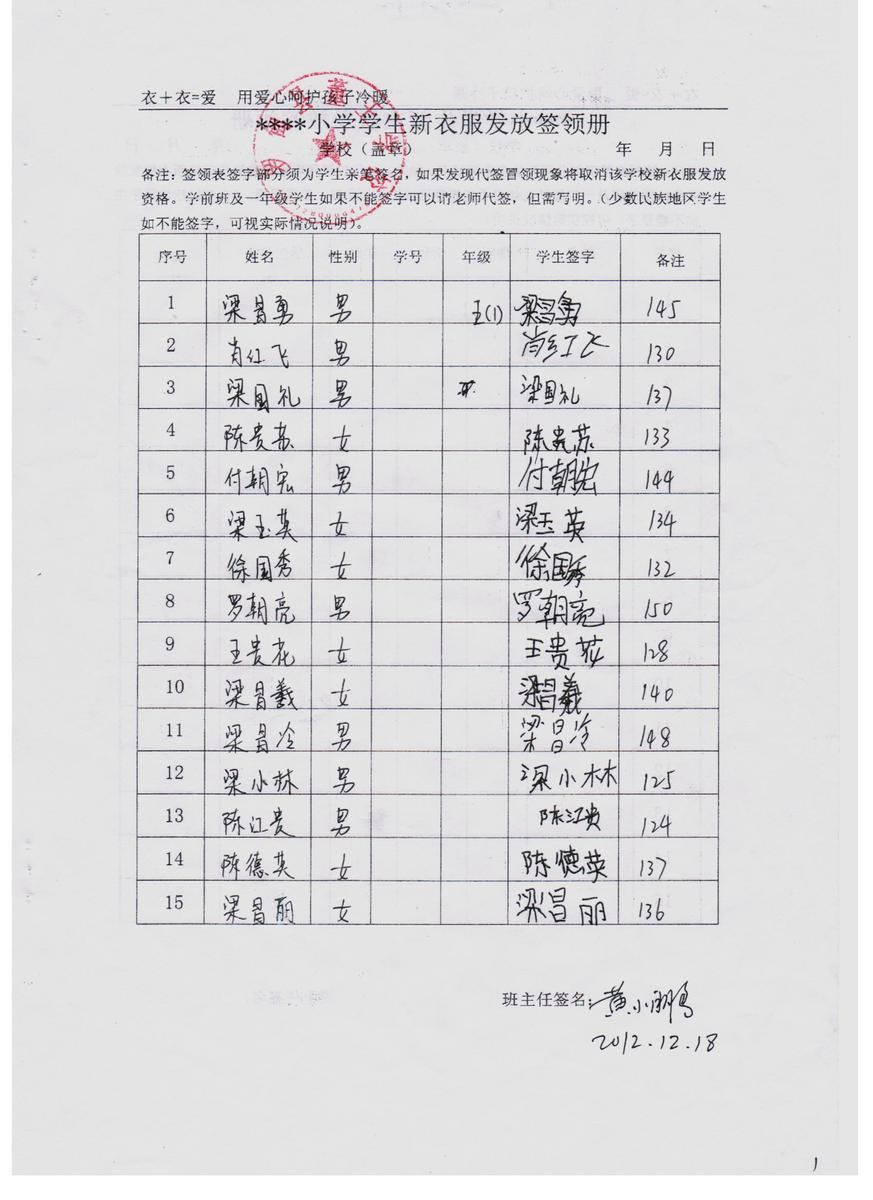 衣＋衣=爱 用爱心呵护孩子冷暖
****小学学生新衣服发放签领册
学校（盖章） 年 月 日
备注：签领表签字部分须为学生亲笔签名，如果发现代签冒领现象将取消该学校新衣服发放
资格。学前班及一年级学生如果不能签字可以请老师代签，但需写明。（少数民族地区学生
如不能签字，可视实际情况说明）。
序号 姓名 性别 学号 年级 学生签字 备注
1 梁昌勇 男 (1) 梁昌勇 145
2 肖红飞 男 肖红飞 130
3 梁国礼 男 梁国礼 137
4 陈贵苏 女 陈贵苏 133
5 付朝宏 男 付朝宏 144
6 梁玉英 女 梁玉英 134
7 徐国秀 女 徐国秀 132
8 罗朝亮 男 罗朝亮 150
9 王贵花 女 王贵花 128
10 梁昌羲 女 梁昌羲 140
11 梁昌冷 男 梁昌冷 148
12 梁小林 男 梁小林 125
13 陈江贵 男 陈江贵 124
14 陈德英 女 陈德英 137
15 梁昌丽 女 梁昌丽 136
班主任签名：黄小鹏
2012.12.18
1